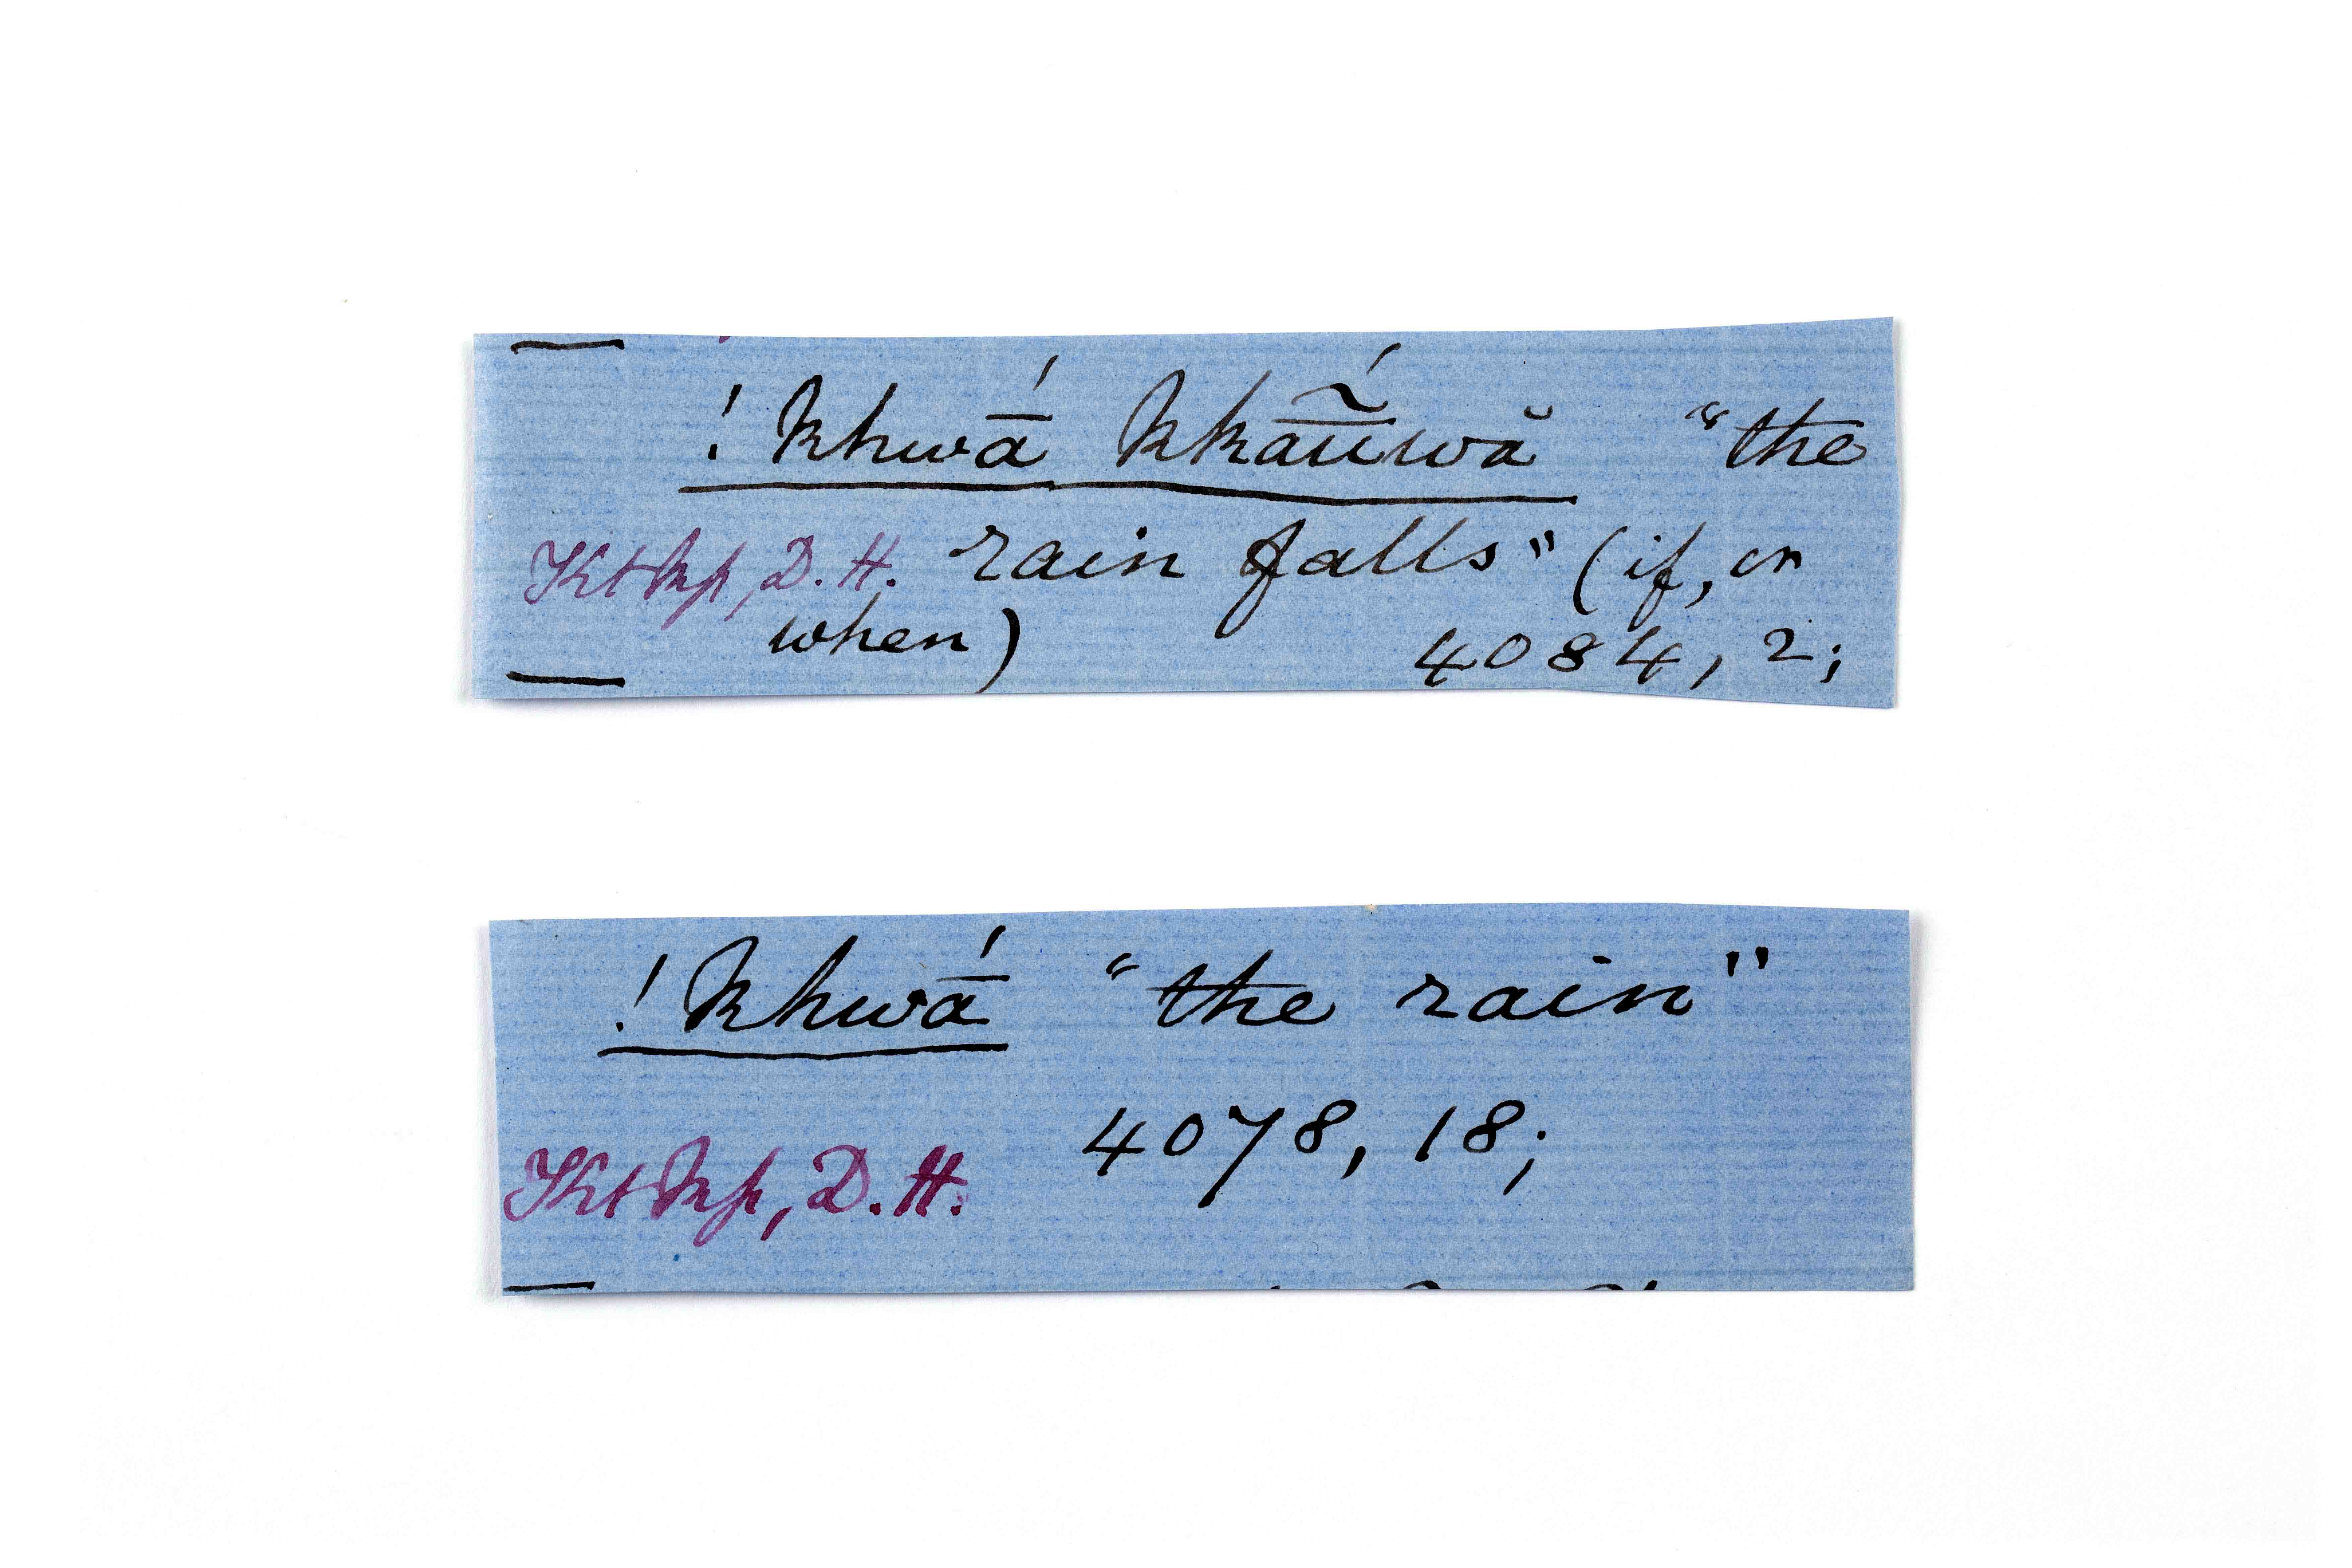 !khwā́ kkāū̃́wă “the
Kt kp, D. H. rain falls” (if, or
when) 4084, 2;
!khwā́ “the rain”
4078, 18;
Kt kp, D. H.